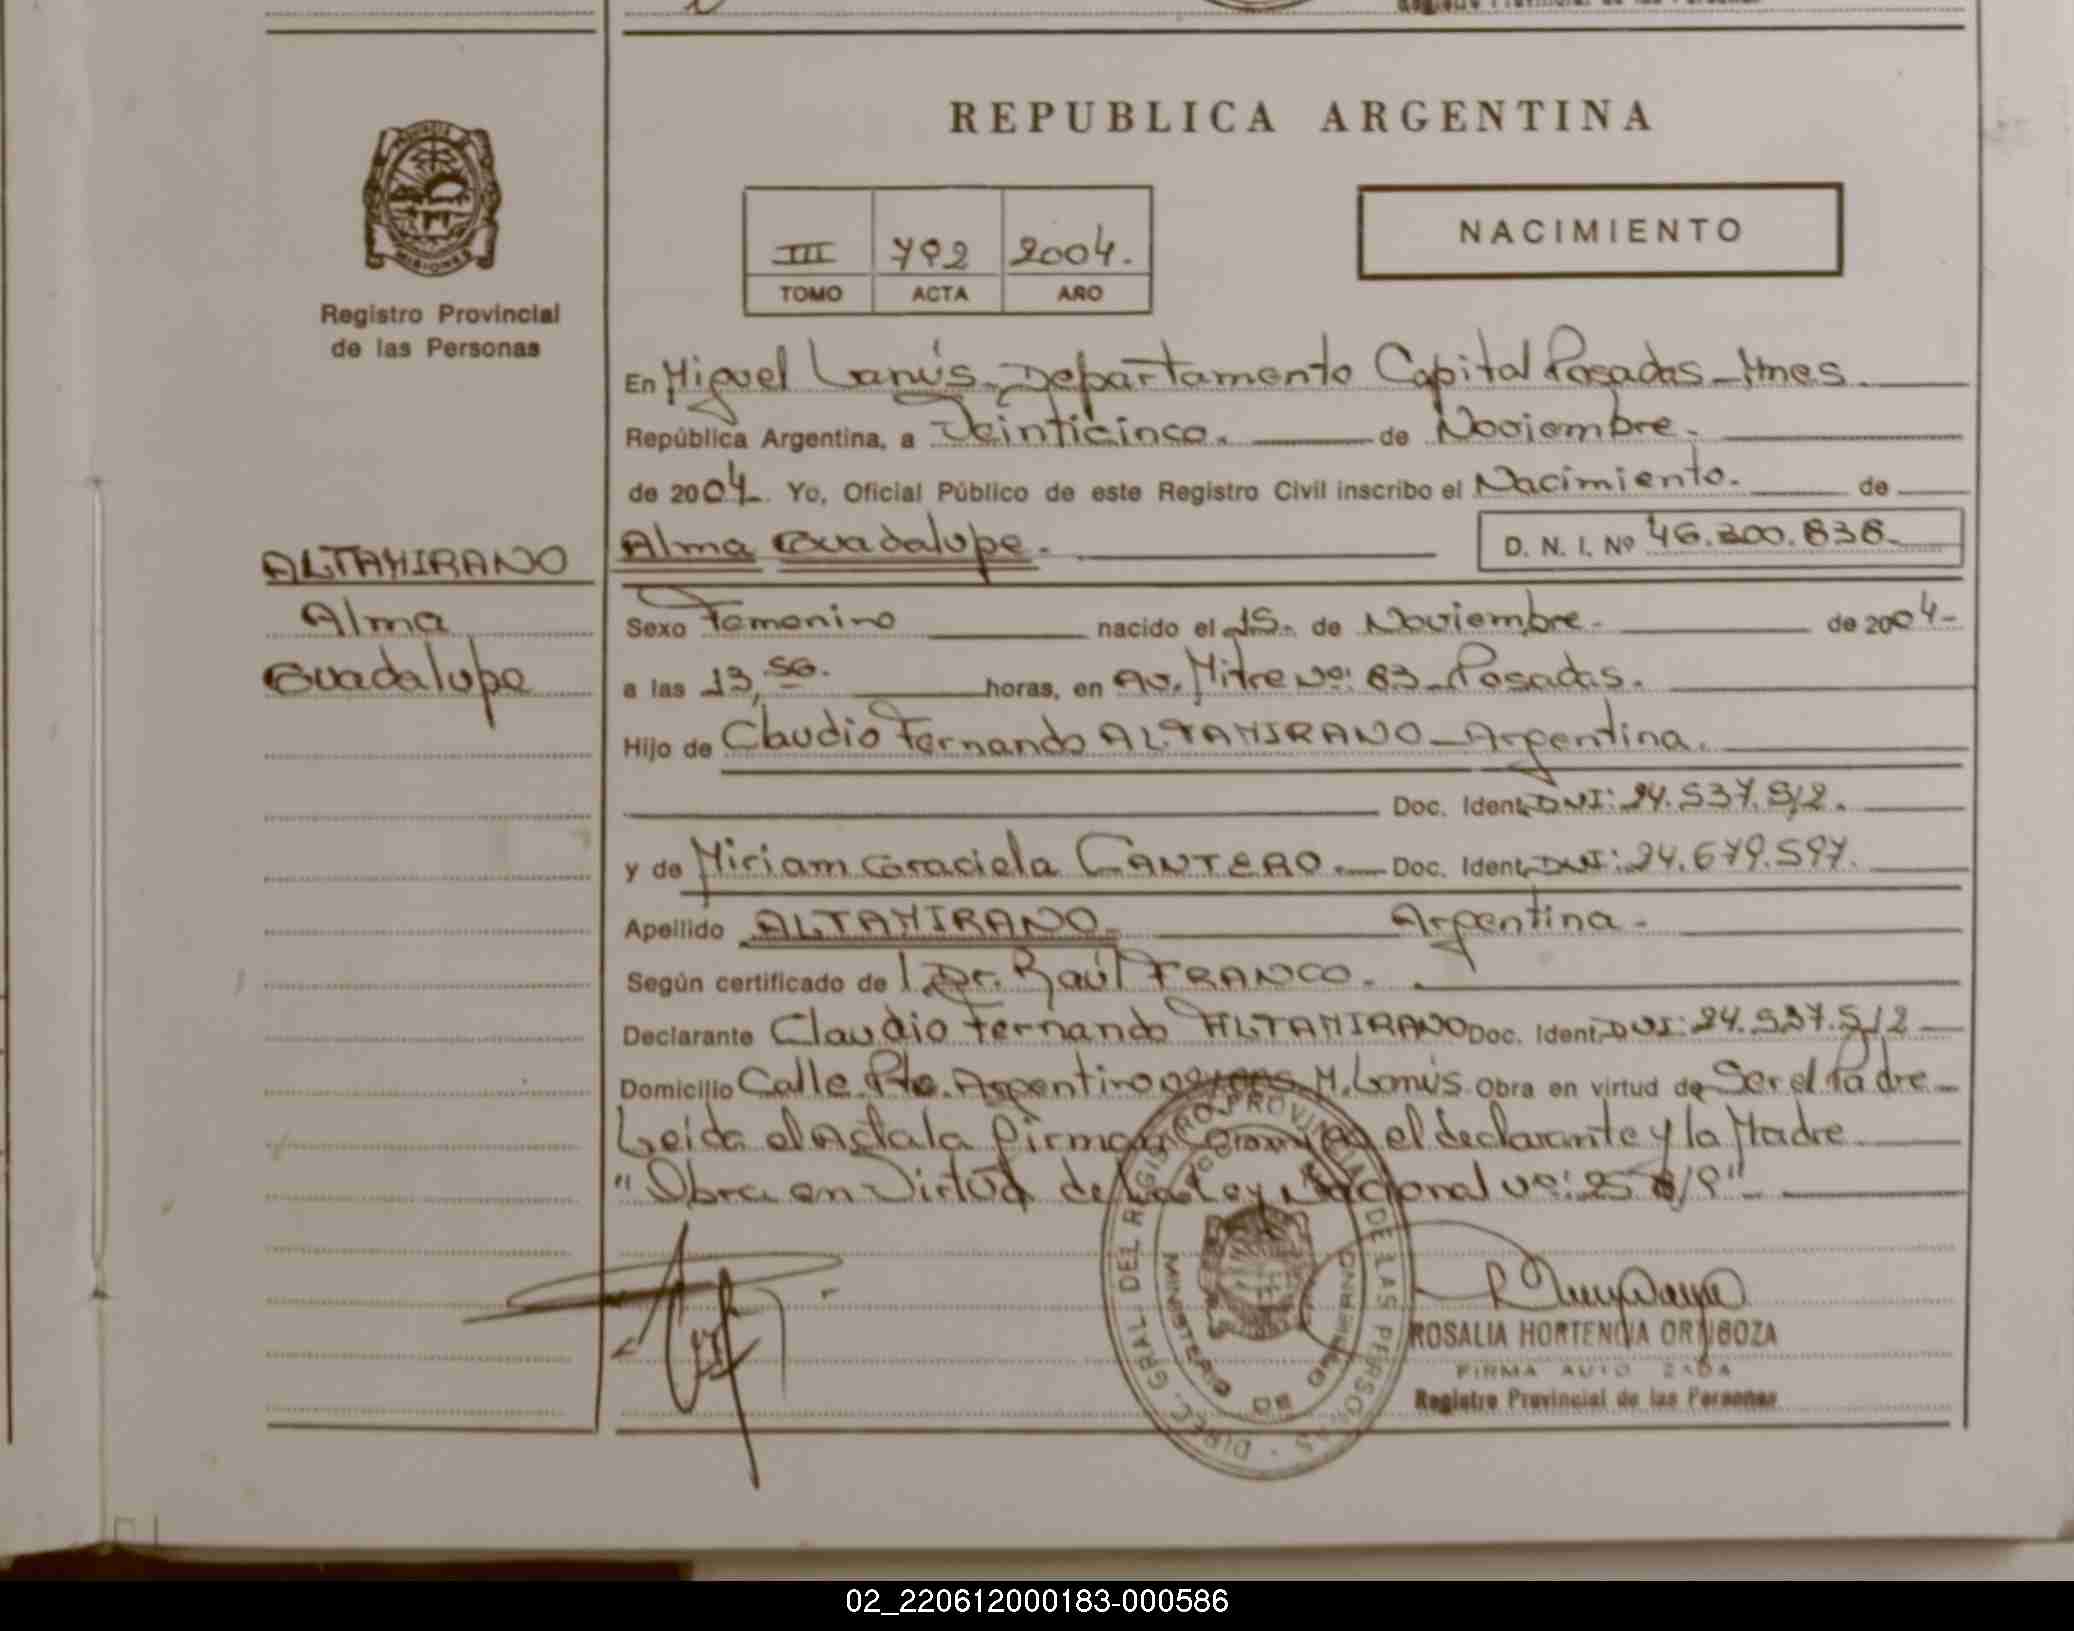 REPUBLICA ARGENTINA
MISIONES
Registro Provincial
de las Personas
III 792 2004.
TOMO ACTA AÑO
NACIMIENTO
En Miguel Lanús - Departamento Capital Posadas - Mnes.
República Argentina, a Veinticinco. de Noviembre.
de 2004. Yo, Oficial Público de este Registro Civil inscribo el Nacimiento. de
ALTAMIRANO
Alma
Guadalupe
Alma Guadalupe.
D. N. I. Nº 46.300.838.
Sexo Femenino nacido el 15. de Noviembre. de 2004-
a las 13,56. horas, en Av. Mitre Nº: 83 - Posadas.
Hijo de Claudio Fernando ALTAMIRANO - Argentina.
Doc. Ident. DNI: 24.537.512.
y de Miriam Graciela CANTERO. Doc. Ident. DNI: 24.679.597.
Apellido ALTAMIRANO Argentina.
Según certificado de l Dr. Raúl FRANCO.
Declarante Claudio Fernando ALTAMIRANO Doc. Ident. DNI: 24.537.512
Domicilio Calle Pto. Argentino M. Lanús. Obra en virtud de Ser el Padre
Leida el Acta la firman el declarante y la Madre
"Obra en Virtud de la Ley Nacional Nº: 25 "
DIREC. GRAL. DEL REGISTRO PROVINCIAL DE LAS PERSONAS
MINISTERIO DE GOBIERNO
ROSALIA HORTENCIA
FIRMA AUTORIZADA
Registro Provincial de las Personas
02_220612000183-000586